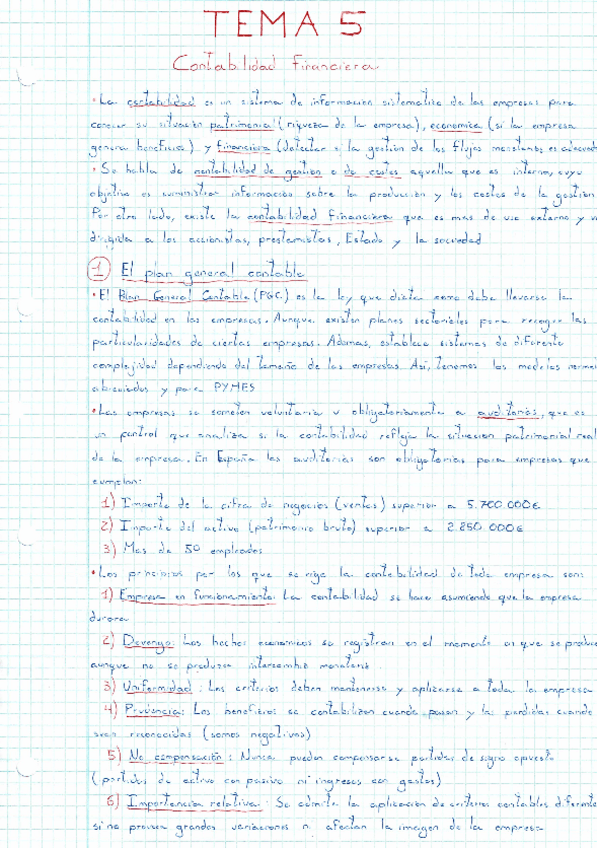 TEMA 5
Contabilidad Financiera
• La contabilidad es un sistema de información sistematico de las empresas para
conocer su situación patrimonial (riqueza de la empresa), economica (si la empresa
genera beneficios) y financiera (detectar si la gestión de los flujos monetarios es adecuad
• Se habla de contabilidad de gestión o de costes aquella que es interna, cuyo
objetivo es suministrar información sobre la producción y los costes de la gestión
Por otro lado, existe la contabilidad financiera que es mas de uso externo y v
dirigida a los accionistas, prestamistas, Estado y la sociedad
1 El plan general contable
• El Plan General Contable (PGC) es la ley que dicta como debe llevarse la
contabilidad en las empresas. Aunque existen planes sectoriales para recoger las
particularidades de ciertas empresas. Ademas, establece sistemas de diferente
complejidad dependiendo del tamaño de las empresas. Así, tenemos los modelos normal
abreviados y para PYMES
• Las empresas se someten voluntaria u obligatoriamente a auditorias, que es
un control que analiza si la contabilidad refleja la situacion patrimonial real
de la empresa. En España las auditorias son obligatorias para empresas que
cumplan:
1) Importe de la cifra de negocios (ventas) superior a 5.700.000€
2) Importe del activo (patrimonio bruto) superior a 2.850.000€
3) Mas de 50 empleados
• Los principios por los que se rige la contabilidad de toda empresa son:
1) Empresa en funcionamiento: La contabilidad se hace asumiendo que la empresa
durara
2) Devengo: Los hechos economicos se registran en el momento en que se produce
aunque no se produzca intercambio monetario.
3) Uniformidad: Los criterios deben mantenerse y aplicarse a toda la empresa
4) Prudencia: Los beneficios se contabilizan cuando pasan y las perdidas cuando
sean reconocidas (somos negativos)
5) No compensación: Nunca pueden compensarse partidas de signo opuesto
(partidas de activo con pasivo ni ingresos con gastos)
6) Importancia relativa: Se admite la aplicación de criterios contables diferente
si no provoca grandes variaciones ni afectan la imagen de la empresa